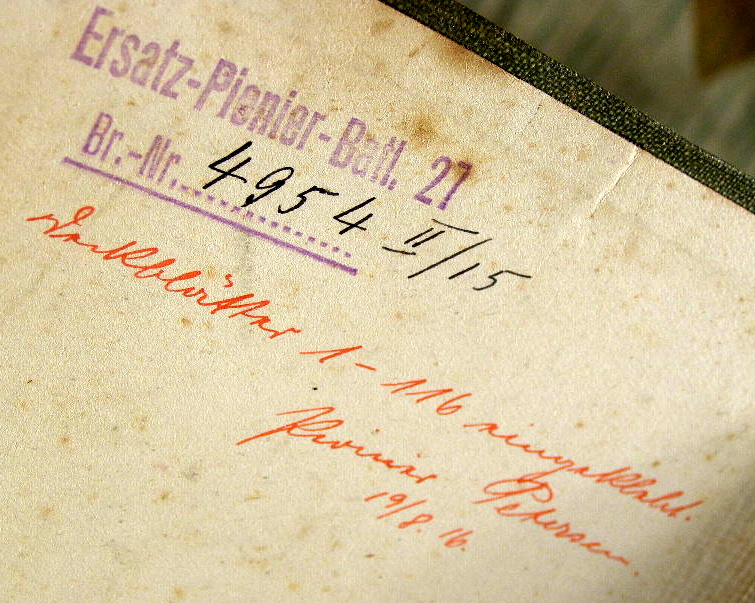 Ersatz-Pionier-Batl. 27
Br.-Nr. 4954 II/15
Deckblätter 1-116 eingeklebt.
Pionier Petersen.
19/8. 16.